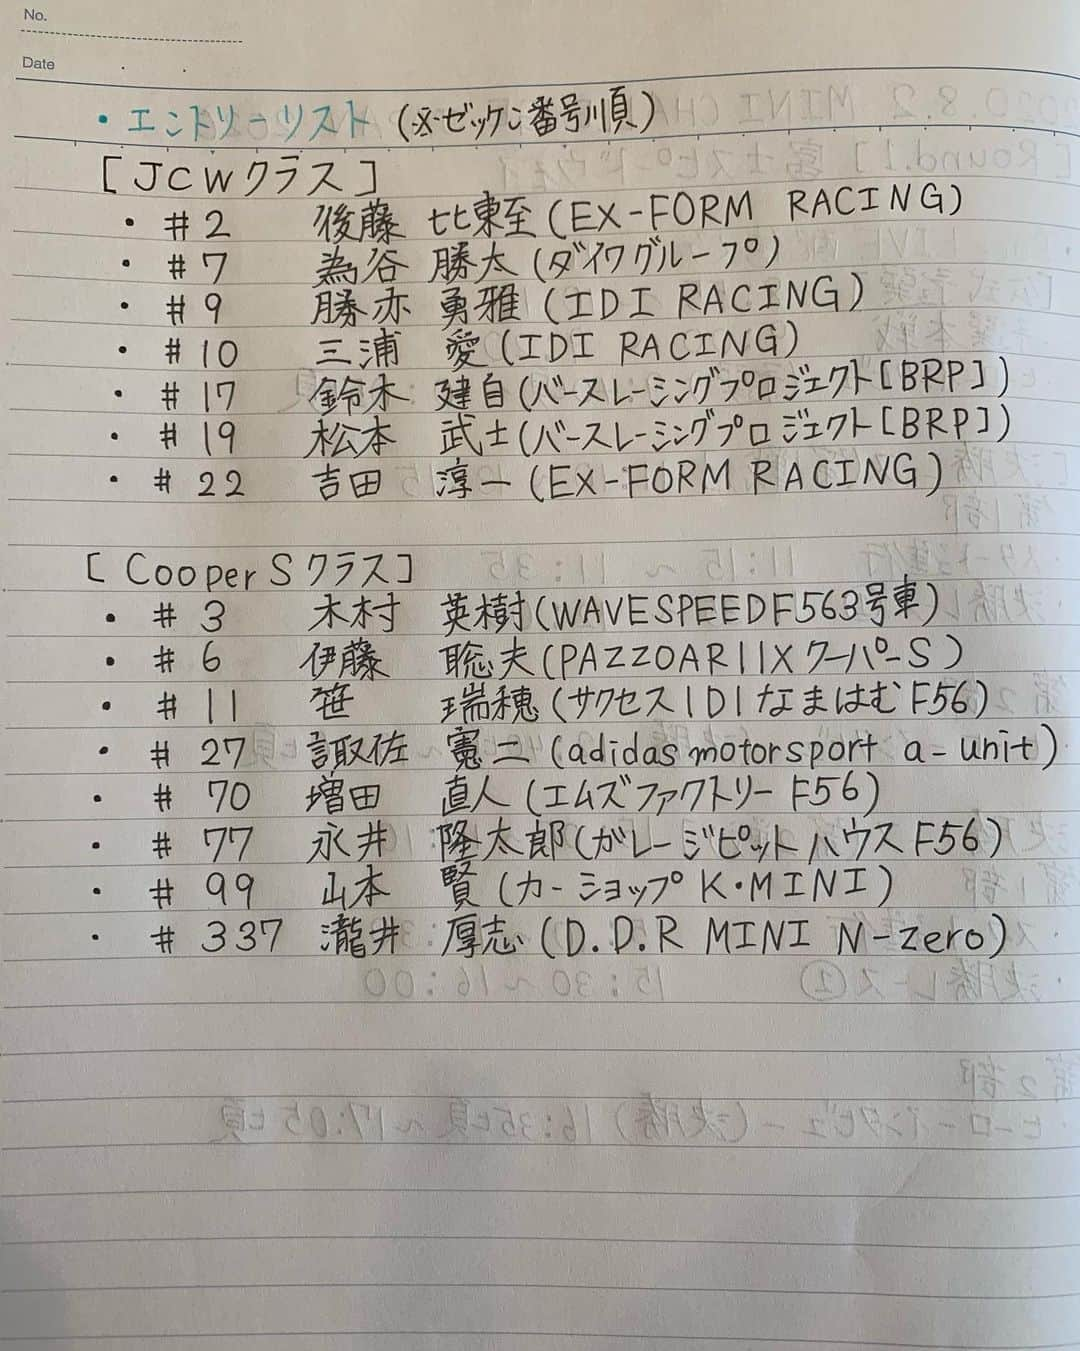 No.
Date
・エントリーリスト (※ゼッケン番号順)
[JCWクラス]
・ #2 後藤 比東至(EX-FORM RACING)
・ #7 為谷 勝太(ダイワグループ)
・ #9 勝亦 勇雅(IDI RACING)
・ #10 三浦 愛(IDI RACING)
・ #17 鈴木 建自(バースレーシングプロジェクト[BRP])
・ #19 松本 武士(バースレーシングプロジェクト[BRP])
・ #22 吉田 淳一(EX-FORM RACING)
[Cooper Sクラス]
・ #3 木村 英樹(WAVESPEEDF563号車)
・ #6 伊藤 聡夫(PAZZOARIIXクーパーS)
・ #11 笹 瑞穂(サクセスIDIなまはむF56)
・ #27 諏佐 寛二(adidas motorsport a-unit)
・ #70 増田 直人(エムズファクトリーF56)
・ #77 永井 隆太郎(ガレージピットハウスF56)
・ #99 山本 賢(カーショップK・MINI)
・ #337 瀧井 厚志(D.D.R MINI N-zero)